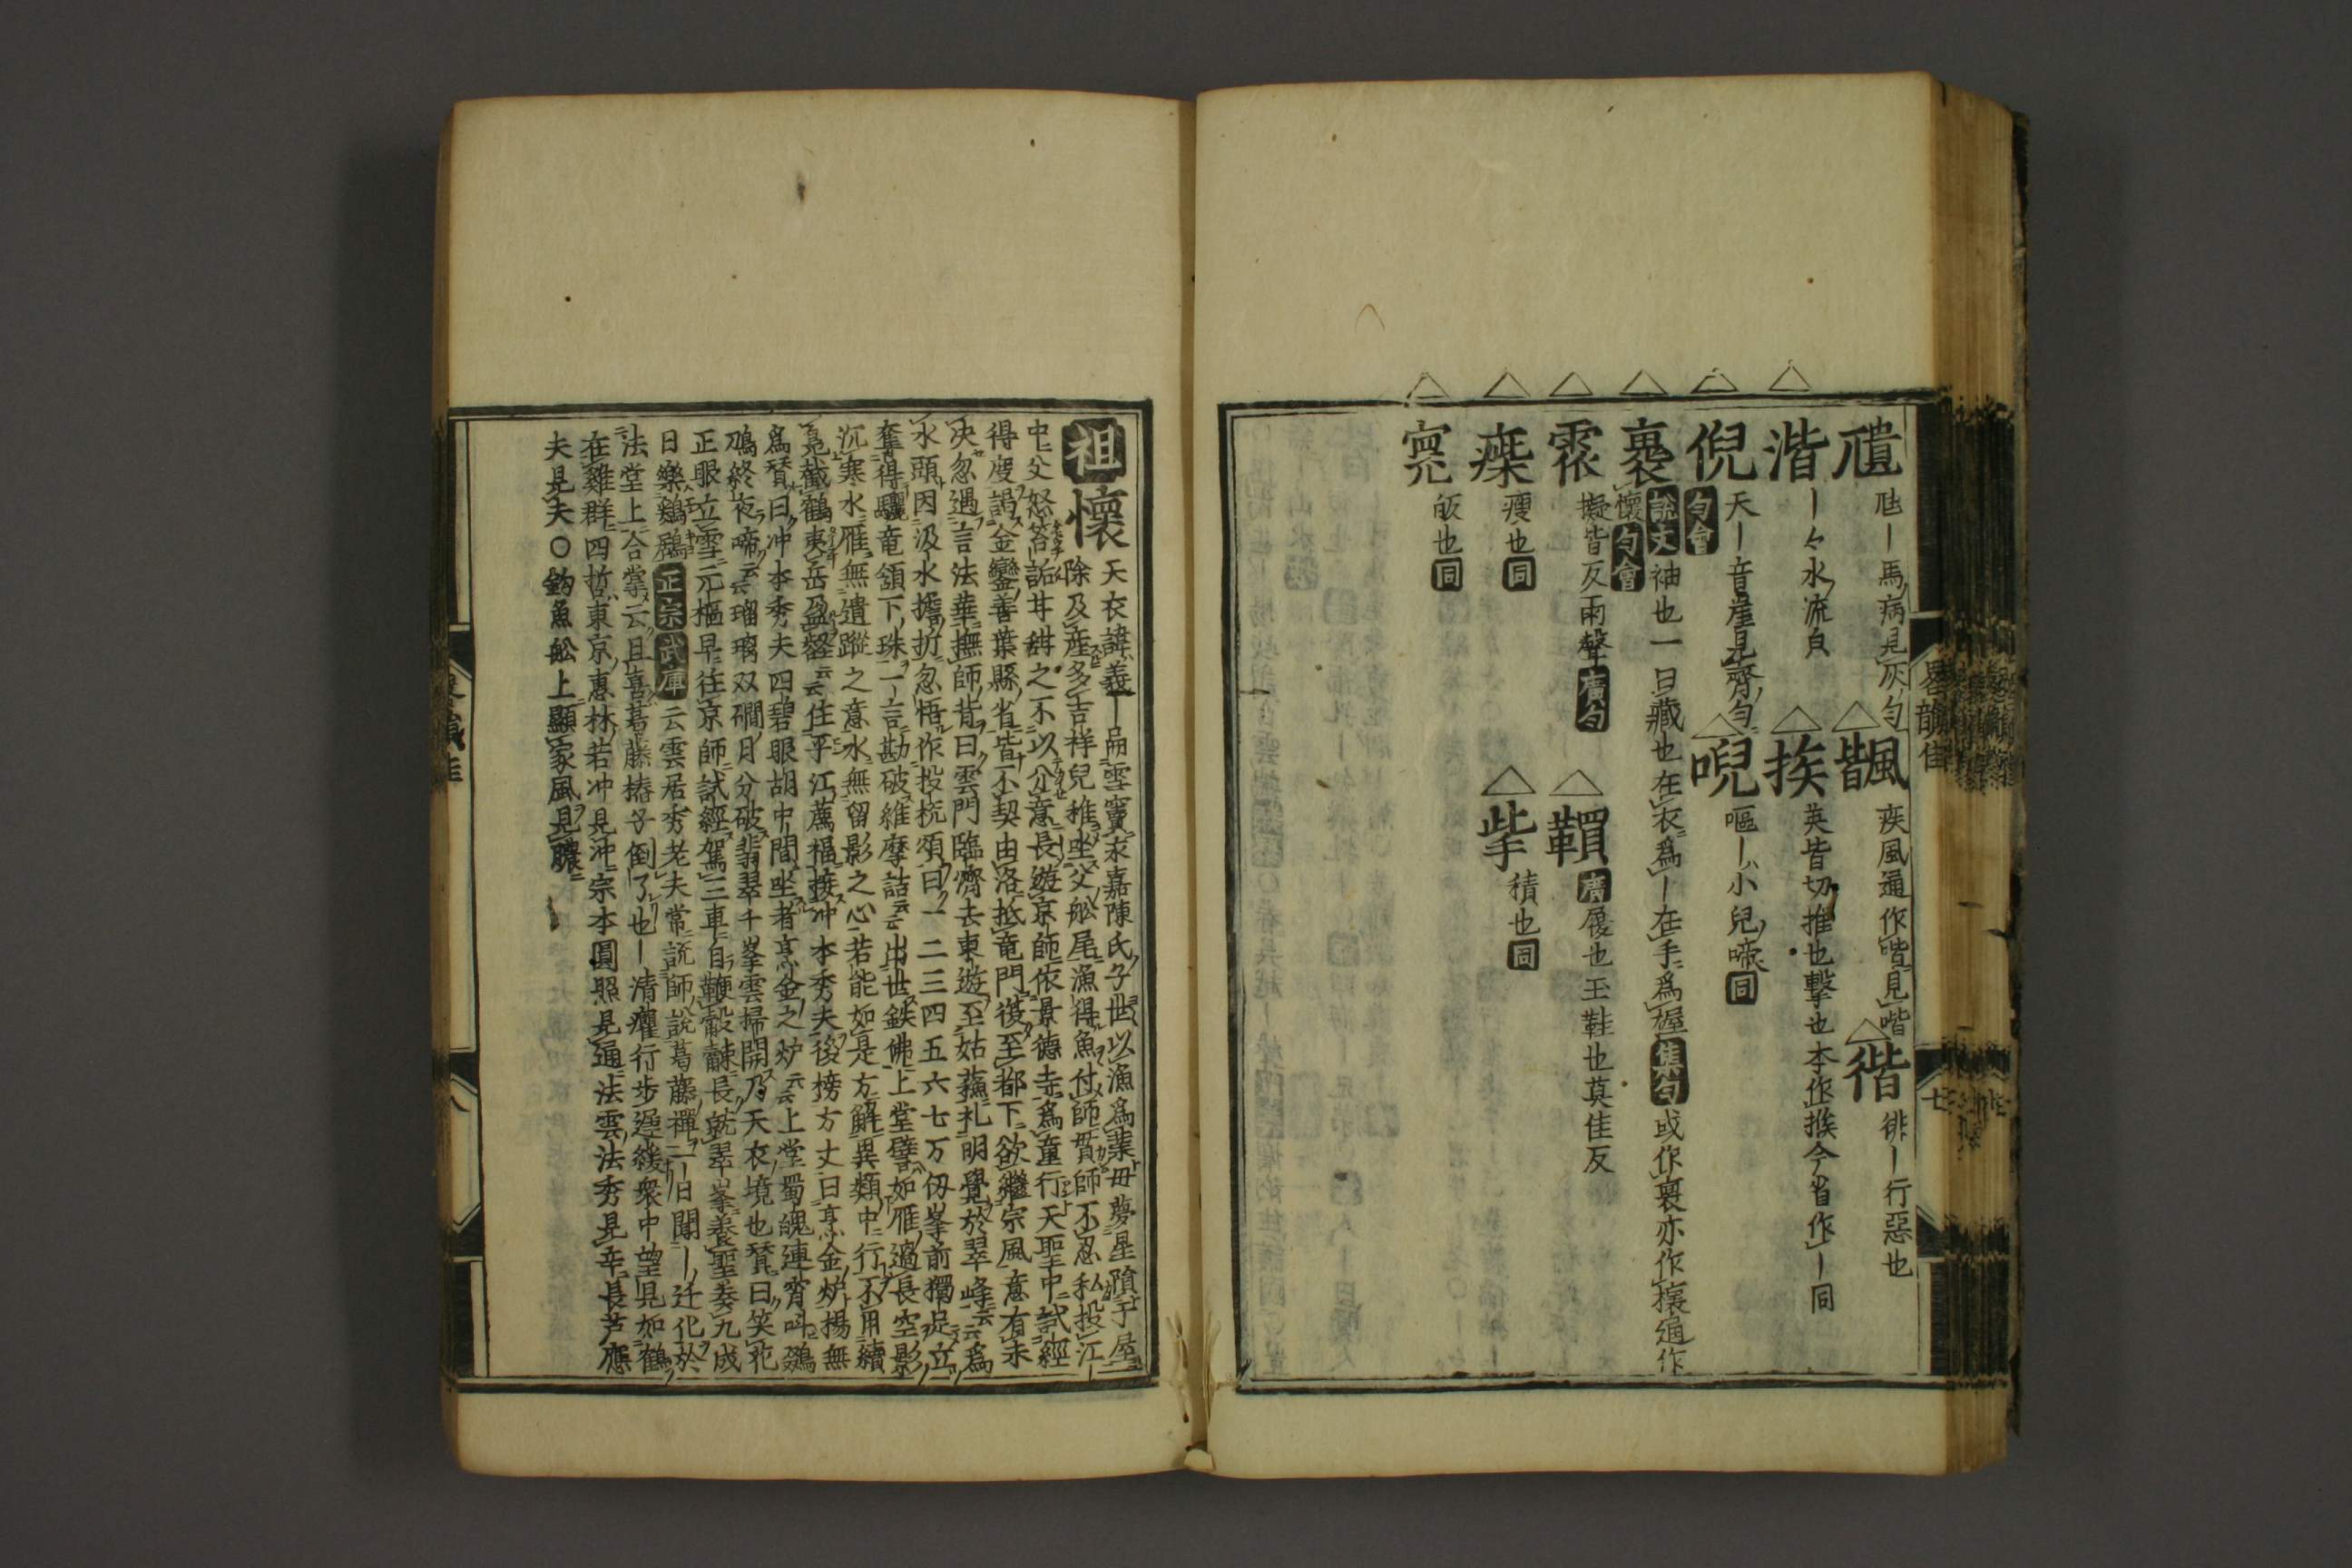 尵－馬病見灰勻 疾風通作喈見喈 徘－行惡也
湝 －々水流皃 挨 英皆切推也擊也本作挨今省作－同
倪 天－音崖見齊勻 唲 嘔－小兒啼同
勻會
褱 說文袖也一曰藏也在衣爲－在手爲握集勻或作裏亦作攘通作
懷勻會
擬皆反雨聲廣勻 廣履也王鞋也莫佳反
瘦也同 積也同
㼝也同
畧韻佳
七
祖懷 天衣諱義－嗣雪竇永嘉陳氏子世以漁爲業母夢星隕于屋
除及産多吉祥兒稚坐父舩尾漁得魚付師貫師不忍私投江
中父怒笞詬甘之不以介意長遊京師依景德寺爲童行天聖中試經
得度謁金鑾善葉縣省皆不契由洛抵竜門復至都下欲繼宗風意有未
决忽遇言法華撫師背曰雲門臨濟去東遊至姑蘇礼明覺於翠峰云云爲
水頭因汲水擔折忽悟作投机頌曰一二三四五六七万仞峯前獨足立
奪得驪竜頷下珠一言勘破維摩詰云云出世鉄佛上堂譬如雁過長空影
沉寒水雁無遺蹤之意水無留影之心若能如是方解異類中行不用續
鳧截鶴夷岳盈壑云云住平江薦福接冲本秀夫後榜方丈曰烹金炉揚無
爲賛曰冲本秀夫四碧眼胡中間坐者烹金之炉云云上堂蜀魄連宵叫鵽
鳭終夜啼云云瑠璃双磵月分破翡翠千峯雲掃開乃天衣境也賛曰笑花
正眼立雪元樞早往京師試經駕三車自鞭毂觫長就翠峯養聖委九成
日樂鷄鷄正宗武庫云雲居秀老夫常説師說葛藤禪一日聞－迁化於
法堂上合掌云且喜葛藤樁子倒了也－清癯行步遲緩衆中望見如鶴
在雞群四哲東京惠林若冲見冲宗本圓照見通法雲法秀見辛長芦應
夫見夫○釣魚舩上顯家風見臁